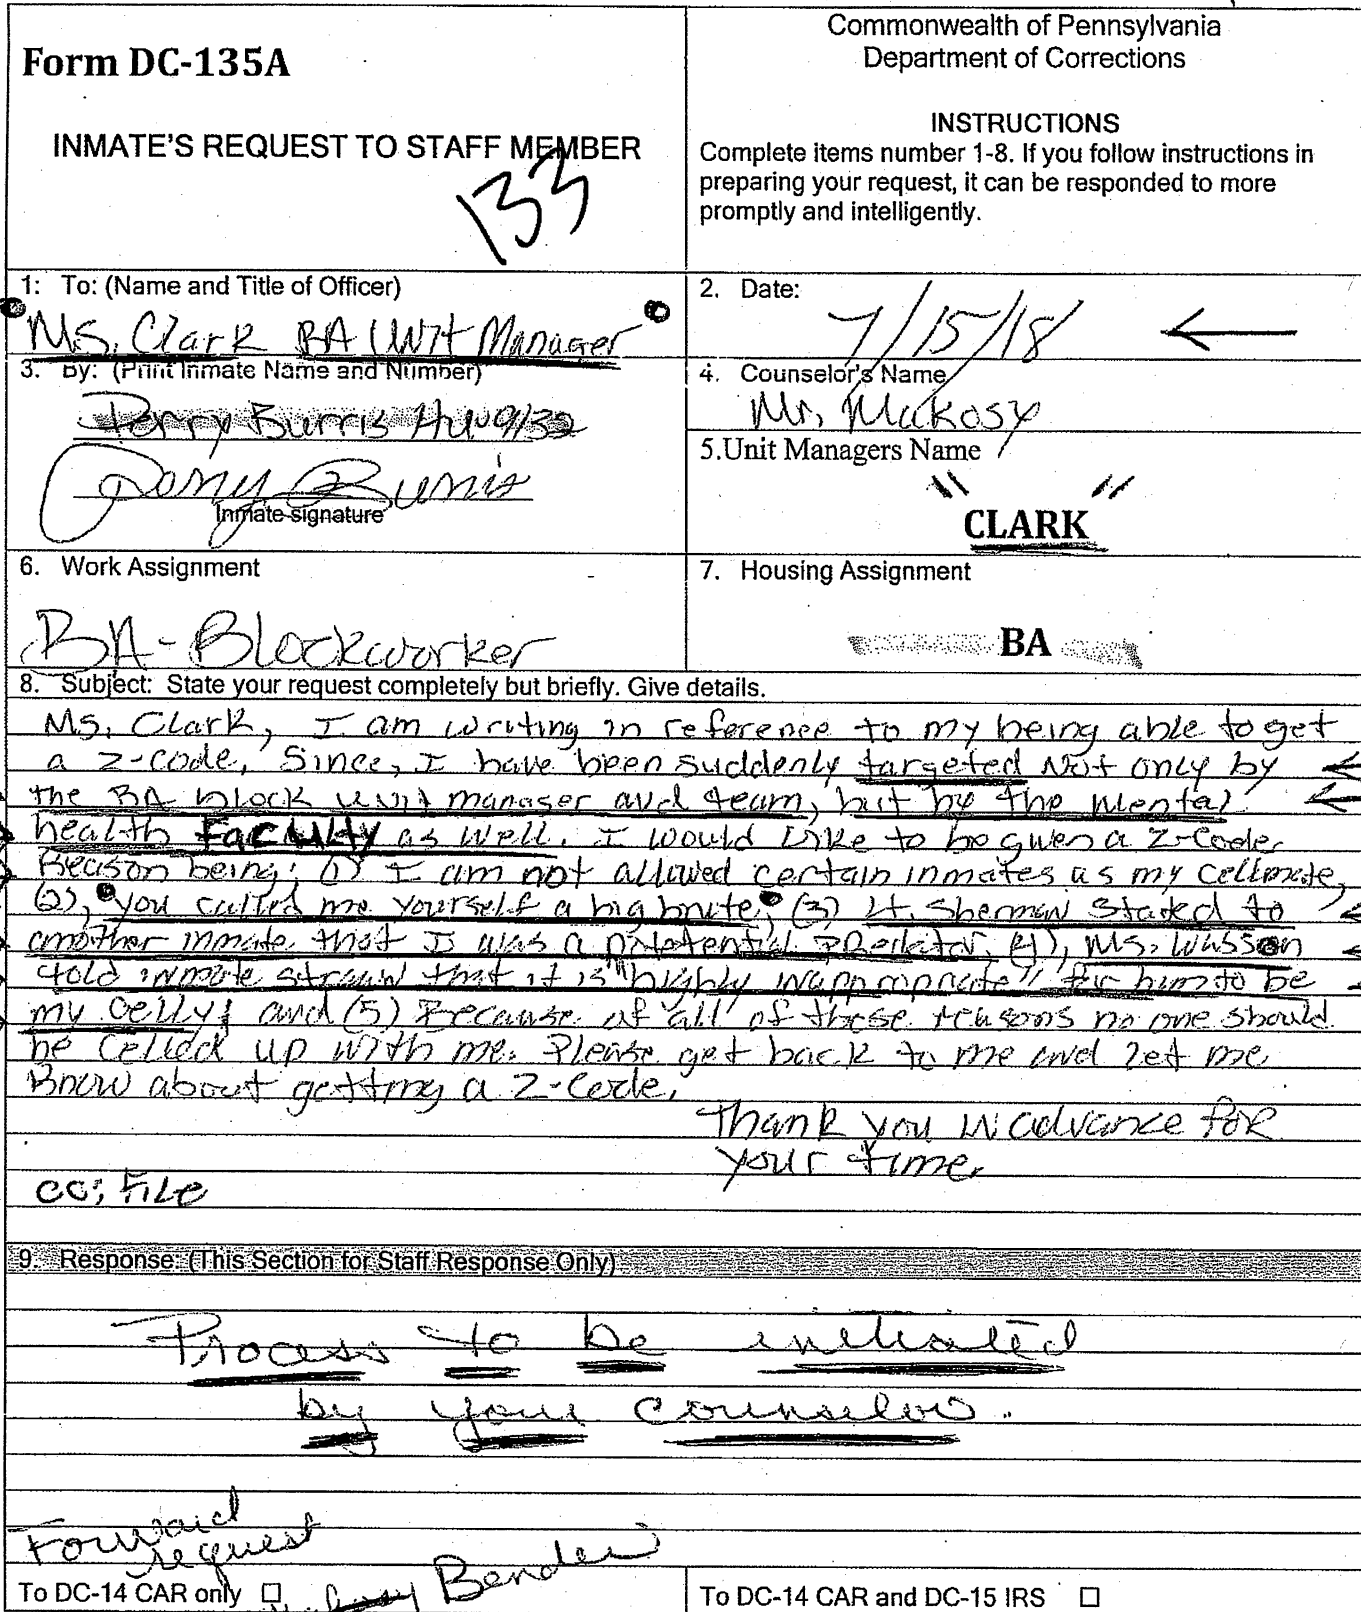 Form DC-135A
INMATE'S REQUEST TO STAFF MEMBER
133
Commonwealth of Pennsylvania
Department of Corrections
INSTRUCTIONS
Complete items number 1-8. If you follow instructions in
preparing your request, it can be responded to more
promptly and intelligently.
1: To: (Name and Title of Officer)
Ms. Clark BA Unit Manager
2. Date:
7/15/18
3. By: (Print Inmate Name and Number)
Perry Burris
Perry Burris
Inmate signature
4. Counselor's Name
Mr. Makosy
5.Unit Managers Name
" CLARK "
6. Work Assignment
BA-Blockworker
7. Housing Assignment
BA
8. Subject: State your request completely but briefly. Give details.
Ms. Clark, I am writing in reference to my being able to get
a Z-code. Since, I have been suddenly targeted Not only by
the BA block unit manager and team, but by the mental
health Faculty as well. I would Like to be given a Z-Code.
Reason being; (1) I am not allowed certain inmates as my cellmate,
(2), you called me yourself a big brute, (3) Lt. Sherman stated to
another inmate that I was a potential predator, (4), Ms. Wasson
told inmate that it is "highly inappropriate" for him to be
my celly; and (5) Because of all of these reasons no one should
be celled up with me. Please get back to me and let me
know about getting a Z-Code.
Thank you in advance for
your time.
cc; File
9. Response: (This Section for Staff Response Only)
Process to be initiated
by your counselor.
Forward
request
Bender
To DC-14 CAR only ☐
To DC-14 CAR and DC-15 IRS ☐